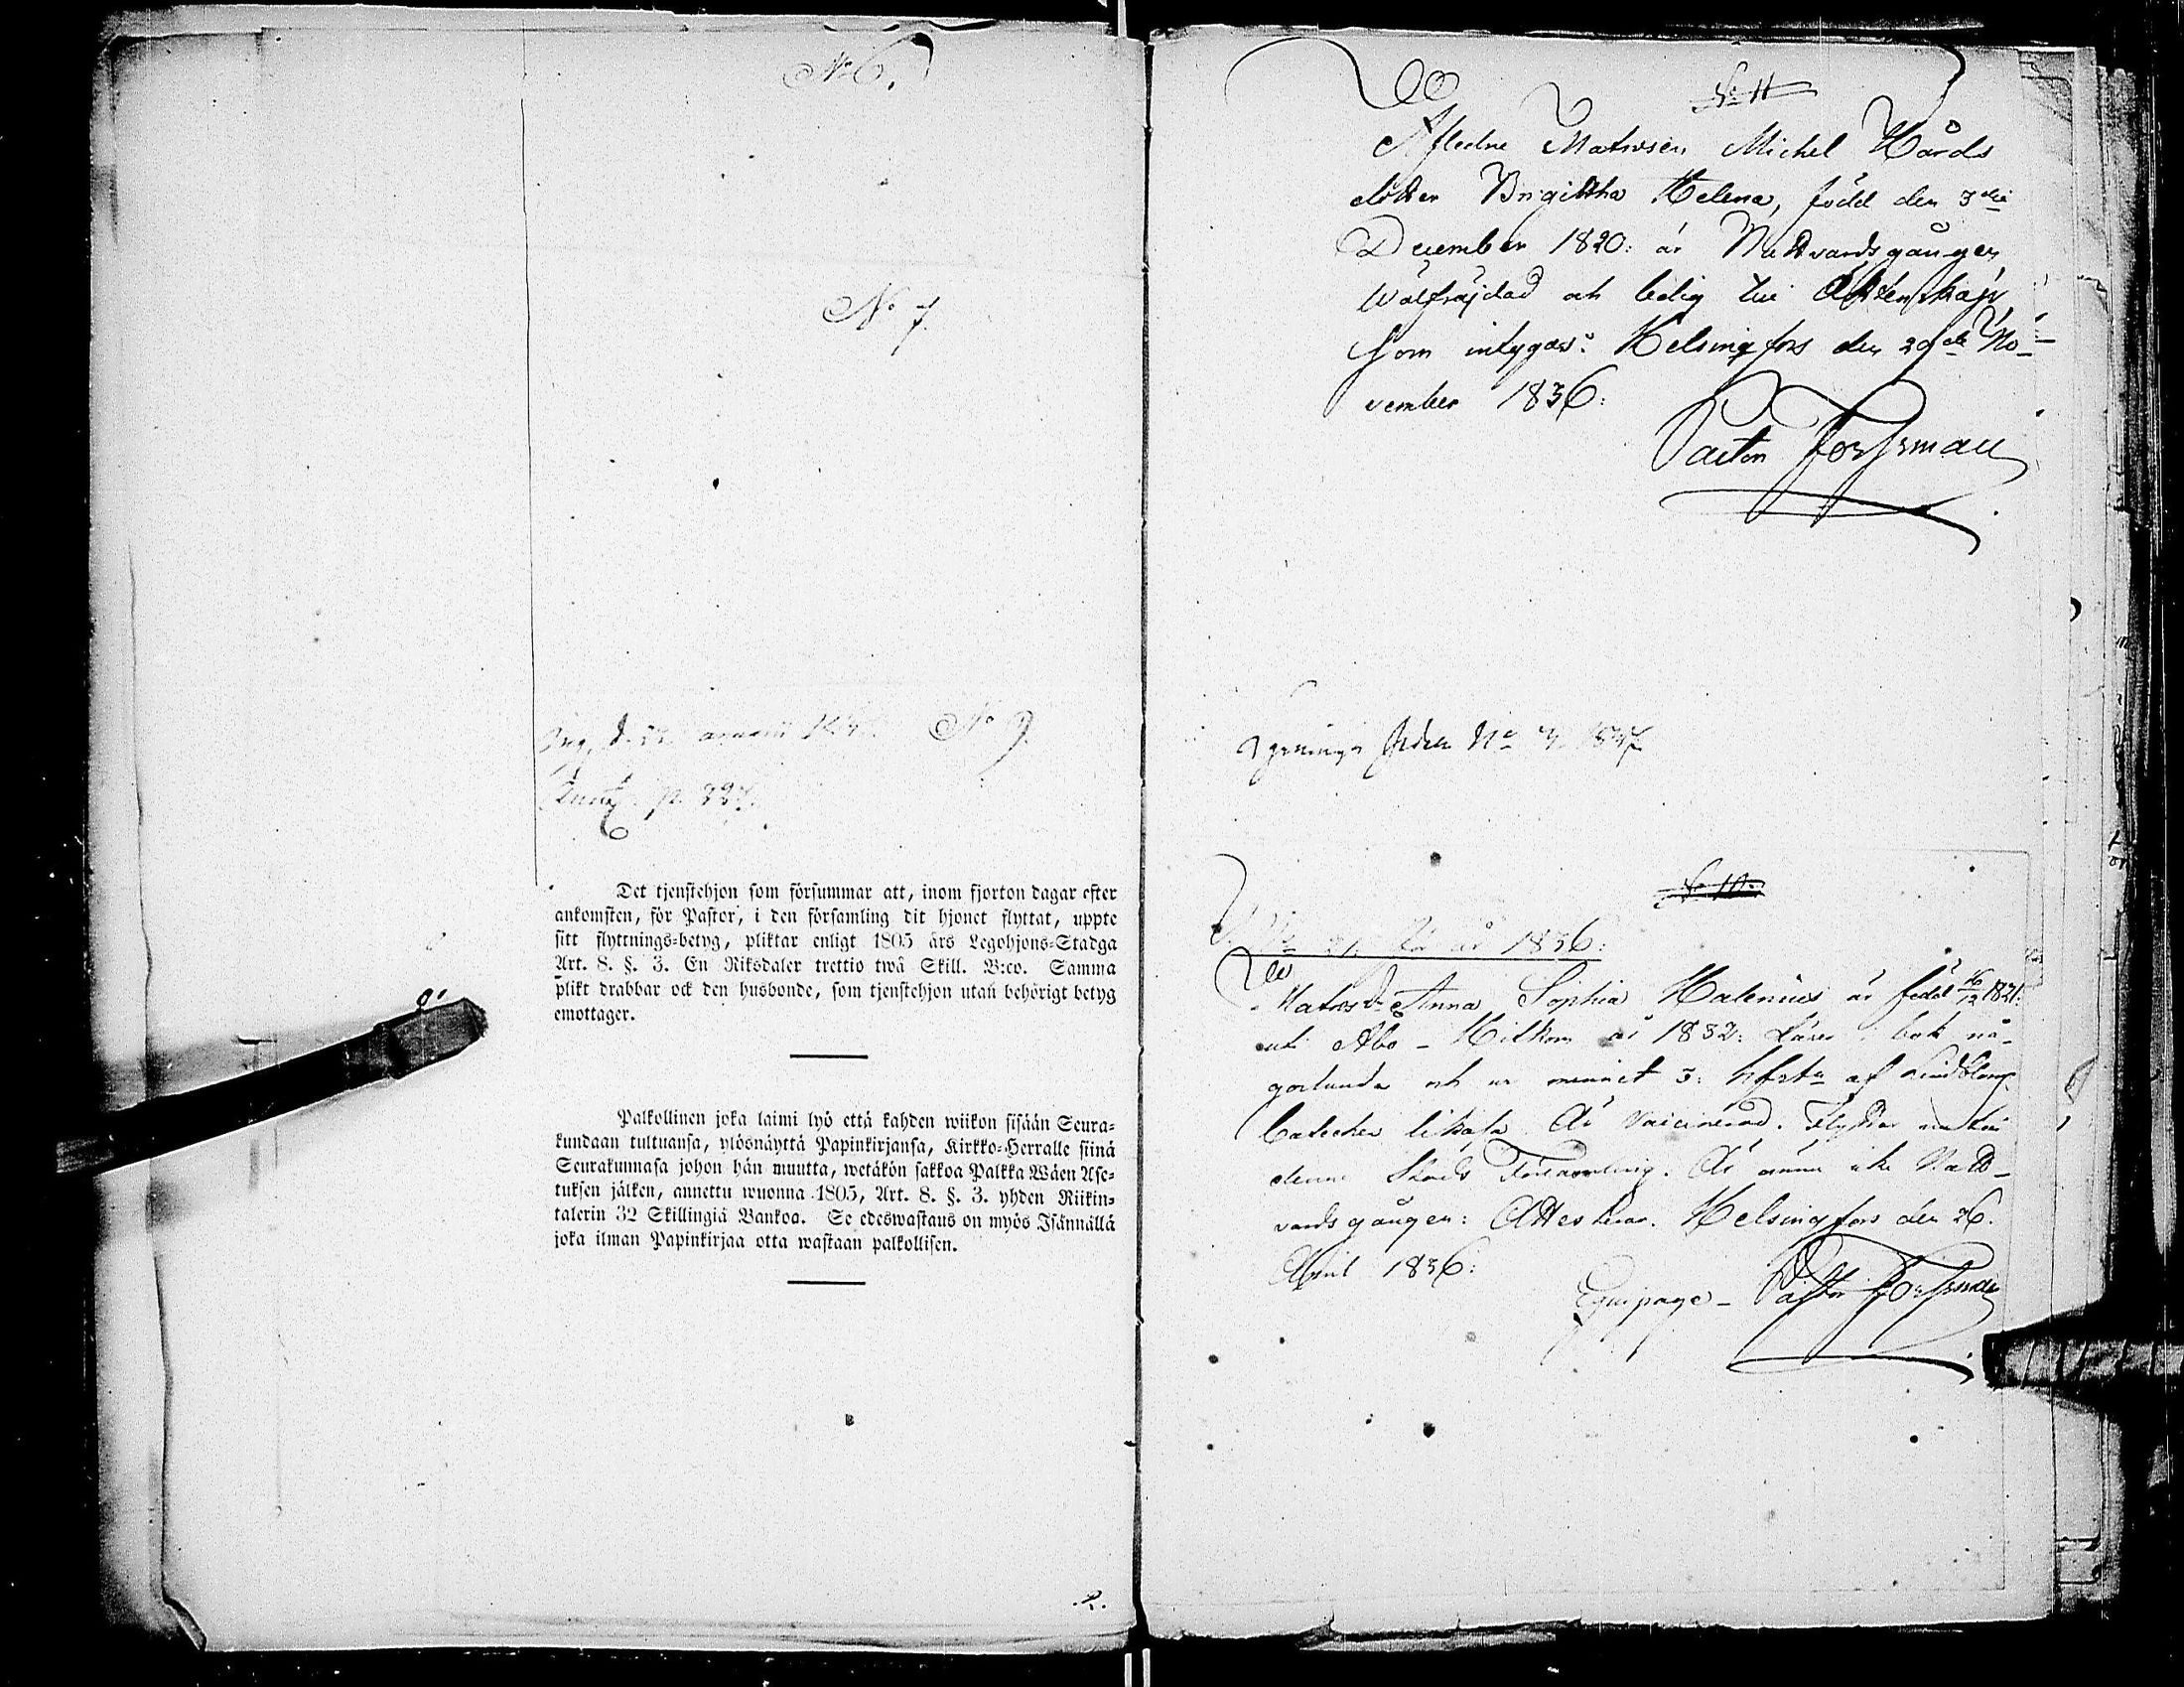 No 6.
No 7.
No 9.
p. 227.
Det tjenstehjon som försummar att, inom fjorton dagar efter
ankomsten, för Pastor, i den församling dit hjonet flyttat, uppte
sitt flyttnings-betyg, pliktar enligt 1805 års Legohjons-Stadga
Art. 8. §. 3. En Riksdaler trettio twå Skill. B:co. Samma
plikt drabbar ock den husbonde, som tjenstehjon utan behörigt betyg
emottager.
Palkollinen joka laimi lyö että kahden wiikon sisään Seura-
kundaan tultuansa, ylösnäyttä Papinkirjansa, Kirkko-Herralle siinä
Seurakunnasa johon hän muutta, wetäkön sakkoa Palkka Wäen Ase-
tuksen jälken, annettu wuonna 1805, Art. 8. §. 3. yhden Riikin-
talerin 32 Skillingiä Bankoa. Se edeswastaus on myös Isännällä
joka ilman Papinkirjaa otta wastaan palkollisen.
No 11
Afledne Matrosen Michel Hårds
dotter Brigittha Helena, född den 3die
December 1820: är Nattvardsgången
Wälfräjdad och ledig till Äktenskap
Som intygar: Helsingfors den 29de No-
vember 1836:
Pastor Forssman
No 1837
No 10
För år 1836:
Matrosd. Anna Sophia Malenius är född 1821:
uti Åbo - Hitkom år 1832: Läser i bok nå-
gorlunda och ur minnet 3: af Lindbloms
Cateches likaså Är Vaccinerad. Flyttar nu till
denne Stads Församling. Är ännu icke Natt-
vardsgången: Attesterar. Helsingfors den 26.
April 1836:
Equipage - Pastor Forssman